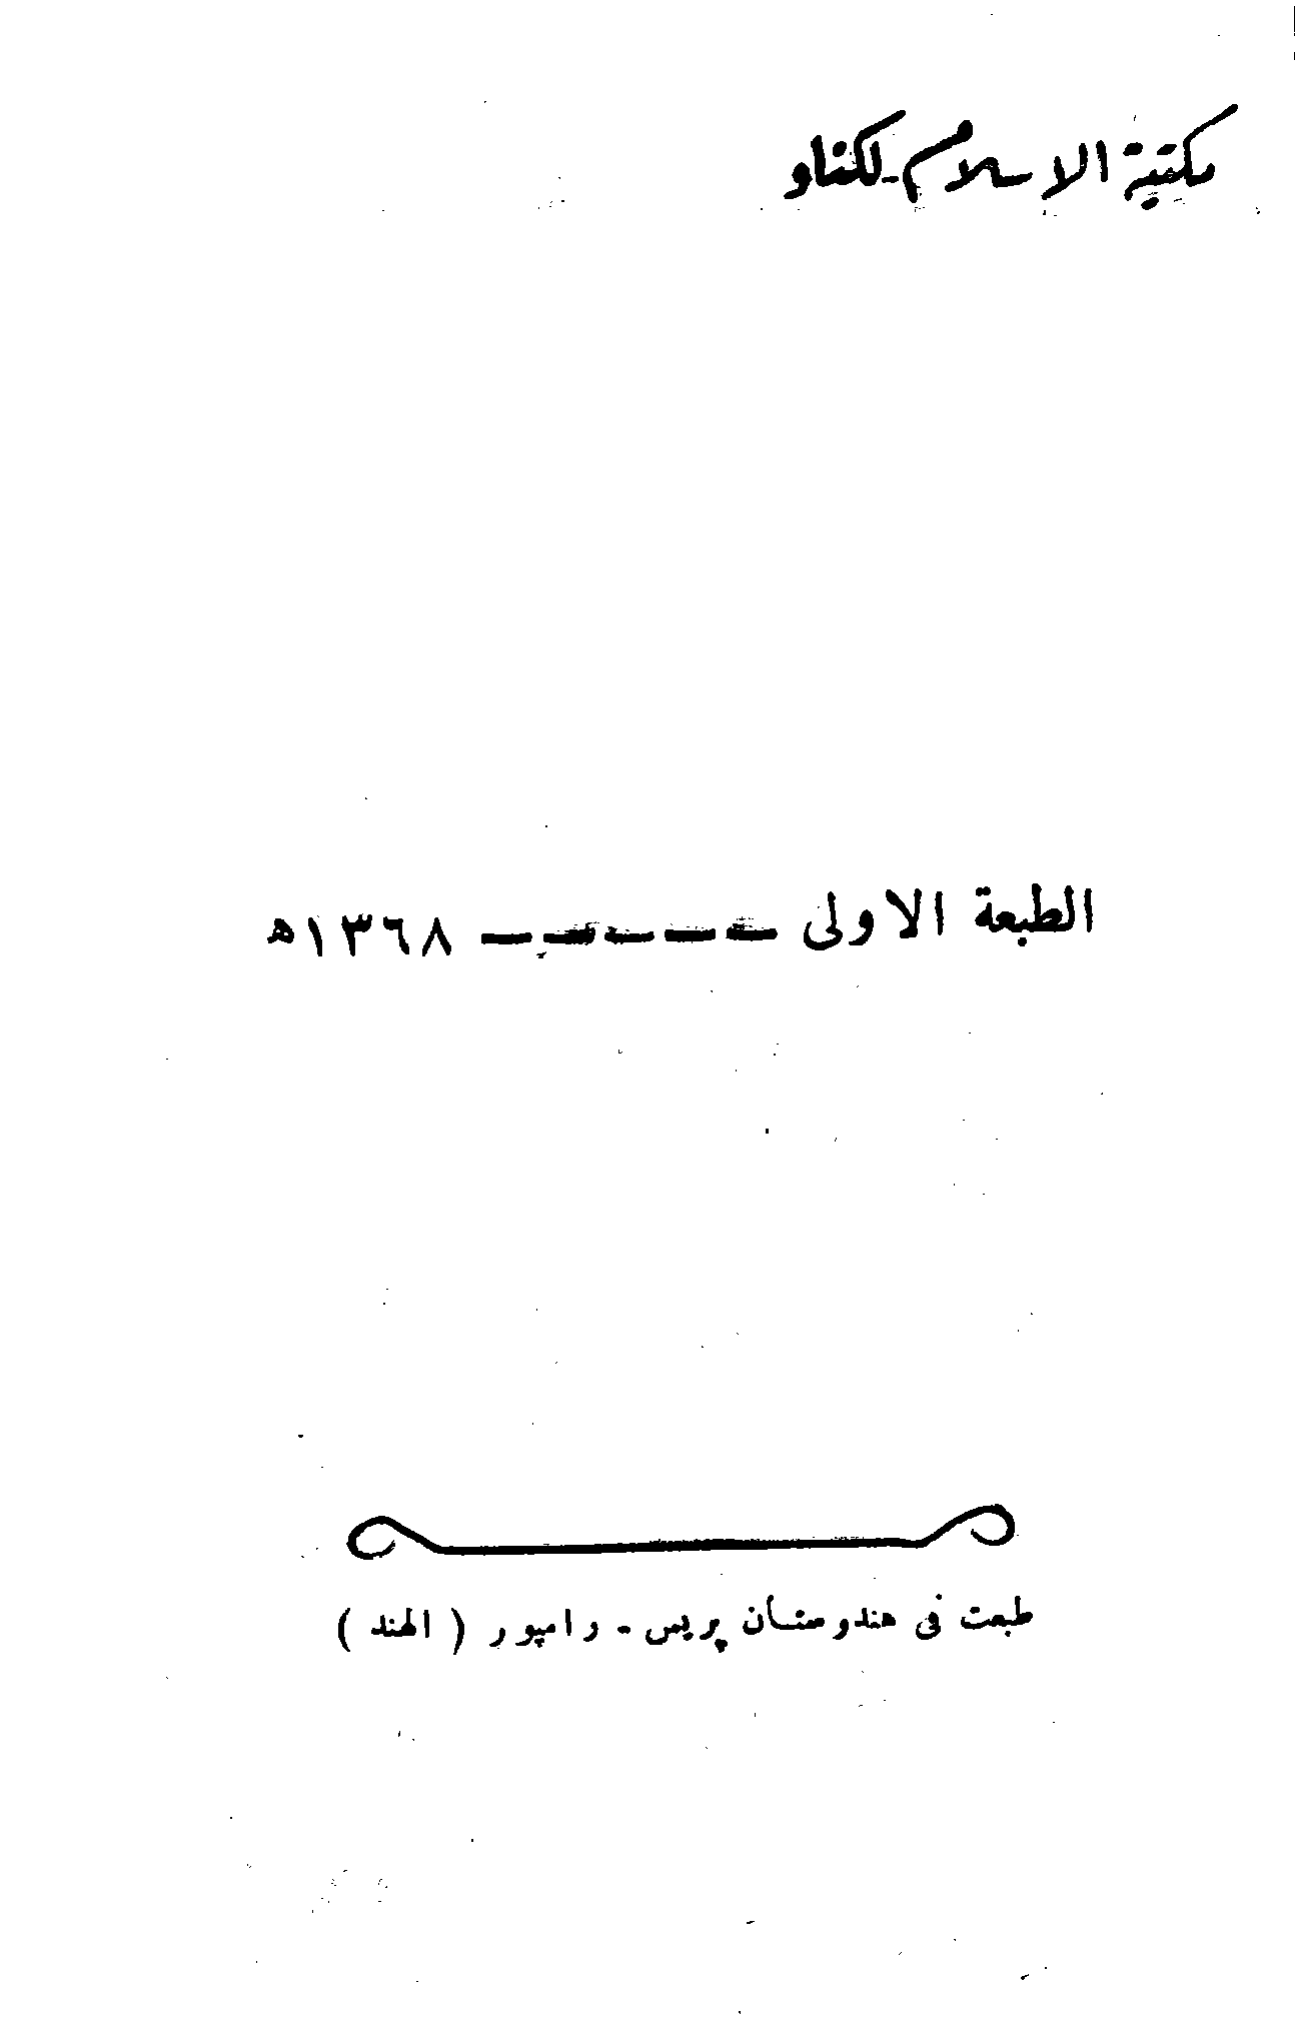 مكتبة الاسلام - لكناو
الطبعة الاولى ـ ـ ـ ـ ـ ١٣٦٨ه
طبعت فى هندوستان پريس - رامپور ( الهند )